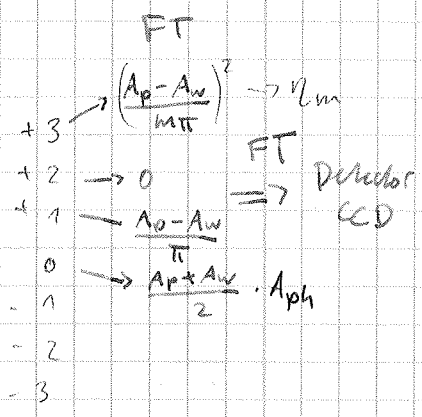 FT
+ 3 → ((Ap - Aw)/(mπ))² → ηm
+ 2 → 0
FT
⇒ Detector
CCD
+ 1 — (Ap - Aw)/π
0 → (Ap + Aw)/2 · Aph
- 1
- 2
- 3